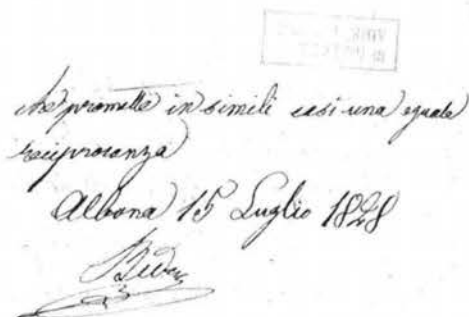 che promette in simili casi una eguale
reciprocanza
Albona 15 Luglio 1828